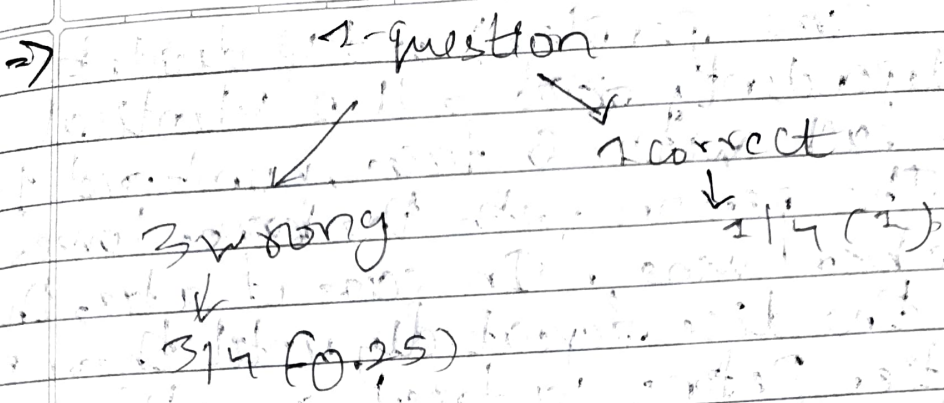 => 1-question
1 correct
3 wrong
1/4 (1)
3/4 (-0.25)